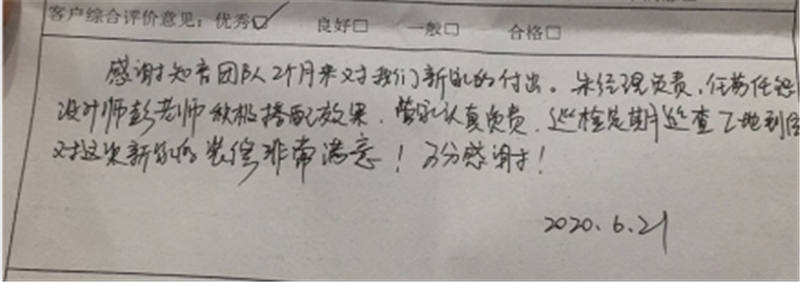 客户综合评价意见：优秀☑ 良好□ 一般□ 合格□
感谢知音团队2个月来对我们新家的付出。朱经理负责，任劳任怨
设计师彭老师积极搭配效果，管家认真负责，巡检定期巡查工地到位
对这次新家的装修非常满意！万分感谢！
2020.6.21